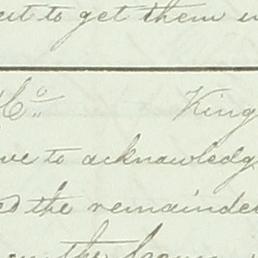 to get them
Co King
to acknowledg
the remainde
the